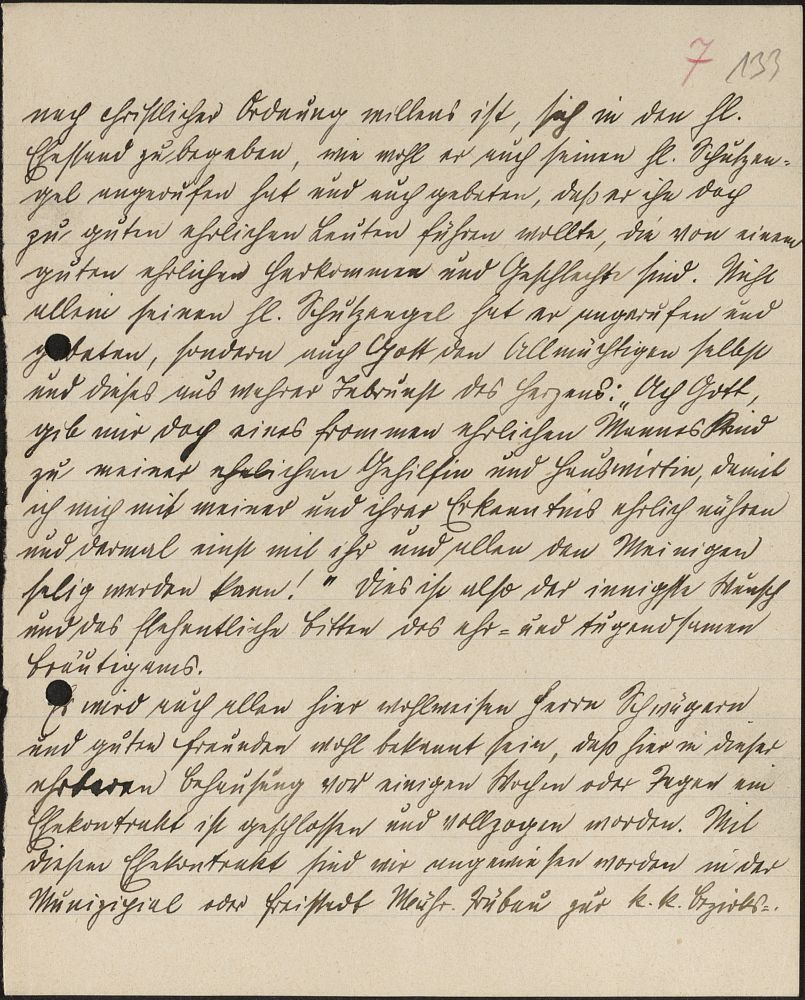 7 133
nach christlicher Ordnung willens ist, sich in den hl.
Ehestand zu begeben, wie wohl er auch seinen hl. Schutzen=
gel angerufen hat und auch gebeten, daß er ihn doch
zu guten ehrlichen Leuten führen wollte, die von einem
guten ehrlichen Herkommen und Geschlecht sind. Nicht
allein seinen hl. Schutzengel hat er angerufen und
gebeten, sondern auch Gott den Allmächtigen selbst
und dieses aus wahrer Inbrunst des Herzens: „Ach Gott,
gib mir doch eines frommen ehrlichen Mannes Kind
zu meiner ehelichen Gehilfin und Hauswirtin, damit
ich mich mit meiner und ihrer Erkenntnis ehrlich nähren
und dermal einst mit ihr und allen den Meinigen
selig werden kann!" Dies ist also der innigste Wunsch
und das flehentliche Bitten des ehr= und tugendsamen
Bräutigams.
Es wird auch allen hier wohlweisen Herrn Schwägern
und guten Freunden wohl bekannt sein, daß hier in dieser
ehrbaren Behausung vor einigen Wochen oder Tagen ein
Ehekontrakt ist geschlossen und vollzogen worden. Mit
diesem Ehekontrakt sind wir angewiesen worden in der
Munizipial oder Freistadt Mähr. Trübau zur k. k. Bezirks=